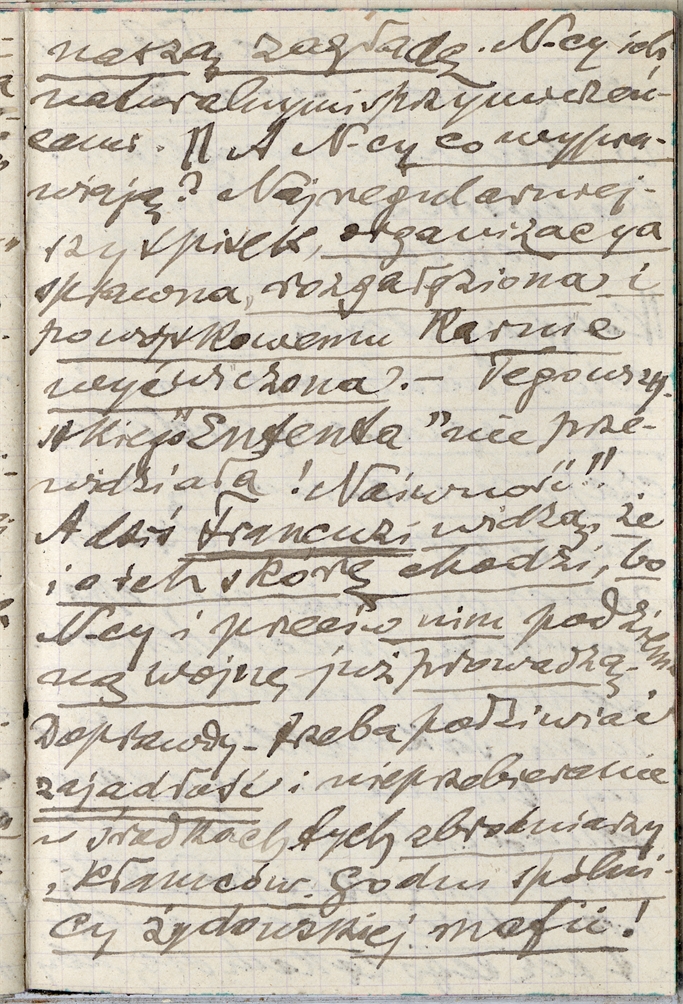 naszą zagładę. N-cy ich
naturalnymi sprzymierzeń-
cami. || A N-cy co wypra-
wiają? Najregularniej-
szy spisek, organizacya
sprawna, rozgałęziona i
po wojskowemu karnie
wyćwiczona. — Tego wszy-
stkiego "Ententa" nie prze-
widziała! Naiwność!!
A dziś Francuzi widzą, że
i o ich skórę chodzi, bo
N-cy i przeciw nim podziem-
ną wojnę już prowadzą.
Doprawdy - trzeba podziwiać
zajadłość i nieprzebieranie
w środkach tych zbrodniarzy
i kłamców. Godni spólni-
cy żydowskiej mafii!